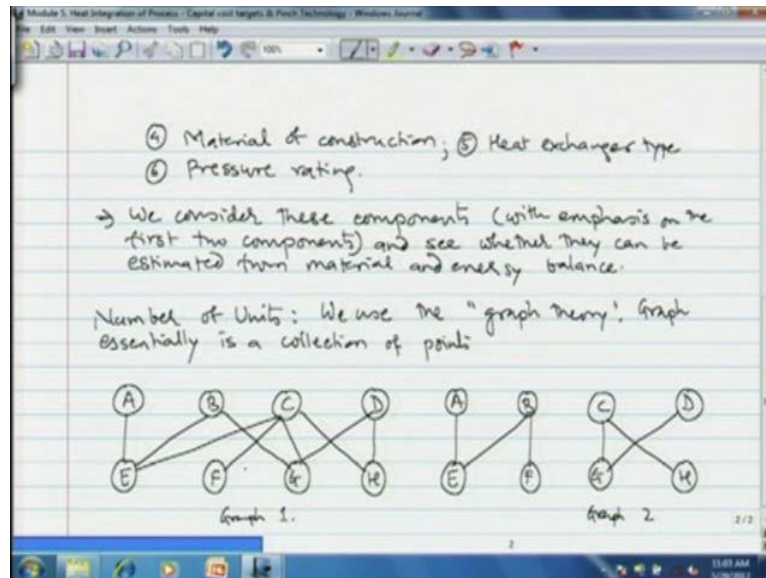 Module 5. Heat Integration of Process - Capital cost targets & Pinch Technology - Windows Journal
File Edit View Insert Actions Tools Help
100%
④ Material of construction; ⑤ Heat exchanger type
⑥ Pressure rating.
→ We consider these components (with emphasis on the
first two components) and see whether they can be
estimated from material and energy balance.
Number of Units: We use the "graph theory". Graph
essentially is a collection of points
A B C D A B C D
E F G H E F G H
Graph 1. Graph 2
2/2
2
11:03 AM